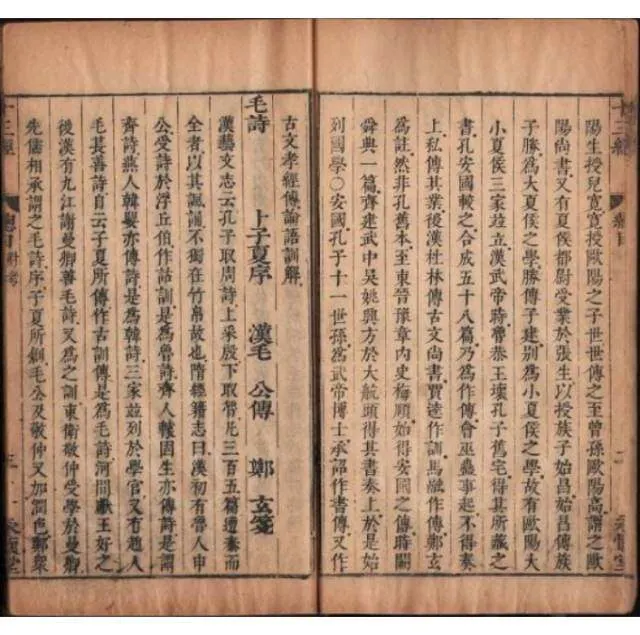 陽生授兒寬寬授歐陽之子世世傳之至曾孫歐陽高謂之歐
陽尚書又有夏侯都尉受業於張生以授族子始昌始昌傳族
子勝爲大夏侯之學勝傳子建別爲小夏侯之學故有歐陽大
小夏侯三家竝立漢武帝時魯恭王壞孔子舊宅得其所藏之
書孔安國較之合成五十八篇乃爲作傳會巫蠱事起不得奏
上私傳其業後漢杜林傳古文尚書賈逵作訓馬融作傳鄭玄
爲註然非孔舊本至東晉豫章內史梅頤始得安國之傳時闕
舜典一篇齊建武中吳姚興方於大航頭得其書奏上於是始
列國學○安國孔子十一世孫爲武帝博士承詔作書傳又作
古文孝經傳論語訓解
毛詩 卜子夏序 漢毛 公傳 鄭 玄箋
漢藝文志云孔子取周詩上采殷下取魯凡三百五篇遭秦而
全者以其諷誦不獨在竹帛故也隋經籍志曰漢初有魯人申
公受詩於浮丘伯作詁訓是爲魯詩齊人轅固生亦傳詩是謂
齊詩燕人韓嬰亦傳詩是爲韓詩三家竝列於學官又有趙人
毛萇善詩自云子夏所傳作古訓傳是爲毛詩河間獻王好之
後漢有九江謝曼卿善毛詩又爲之訓東衛敬仲受學於曼卿
先儒相承謂之毛詩序子夏所創毛公及敬仲又加潤色鄭衆
十三經
總目
附考